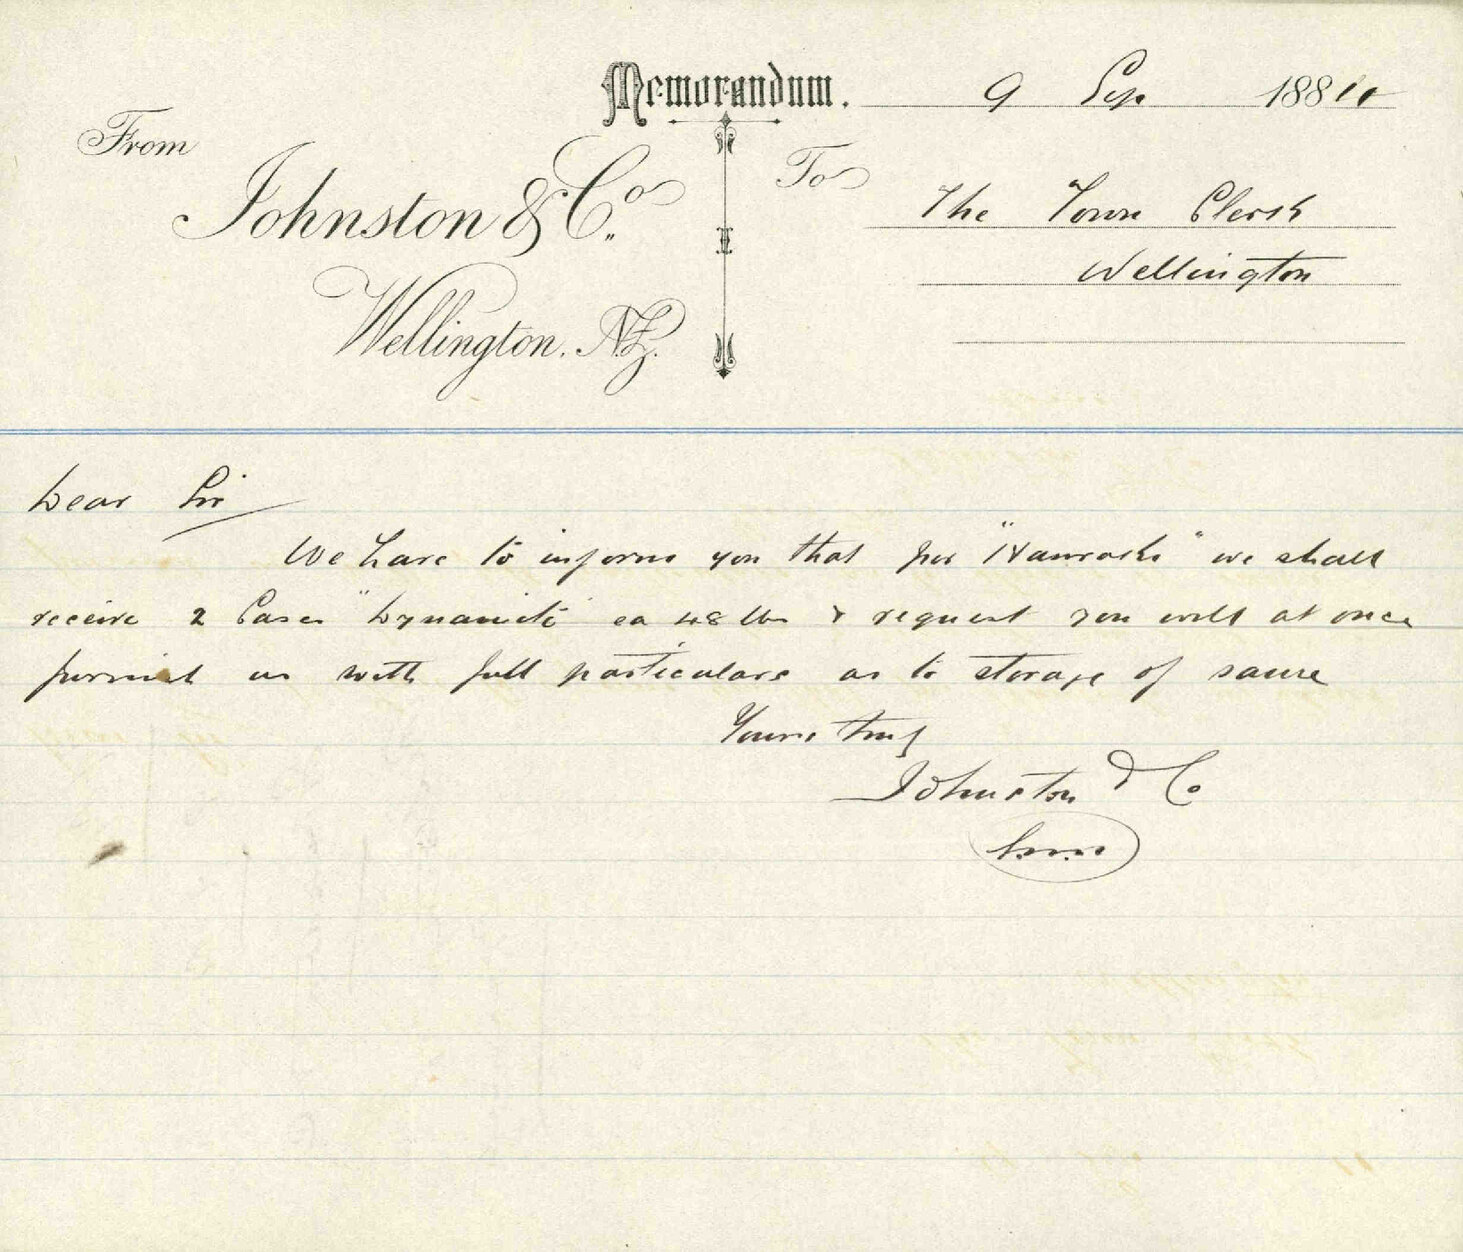 Memorandum. 9 Sep 188
From
To
Johnston & Co.
The Town Clerk
Wellington
Wellington. N.Z.
Dear Sir
We have to inform you that per " " we shall
receive 2 Cases "Dynamite" ea 48 lbs & request you will at once
furnish us with full particulars as to storage of same
Yours truly
Johnston & Co